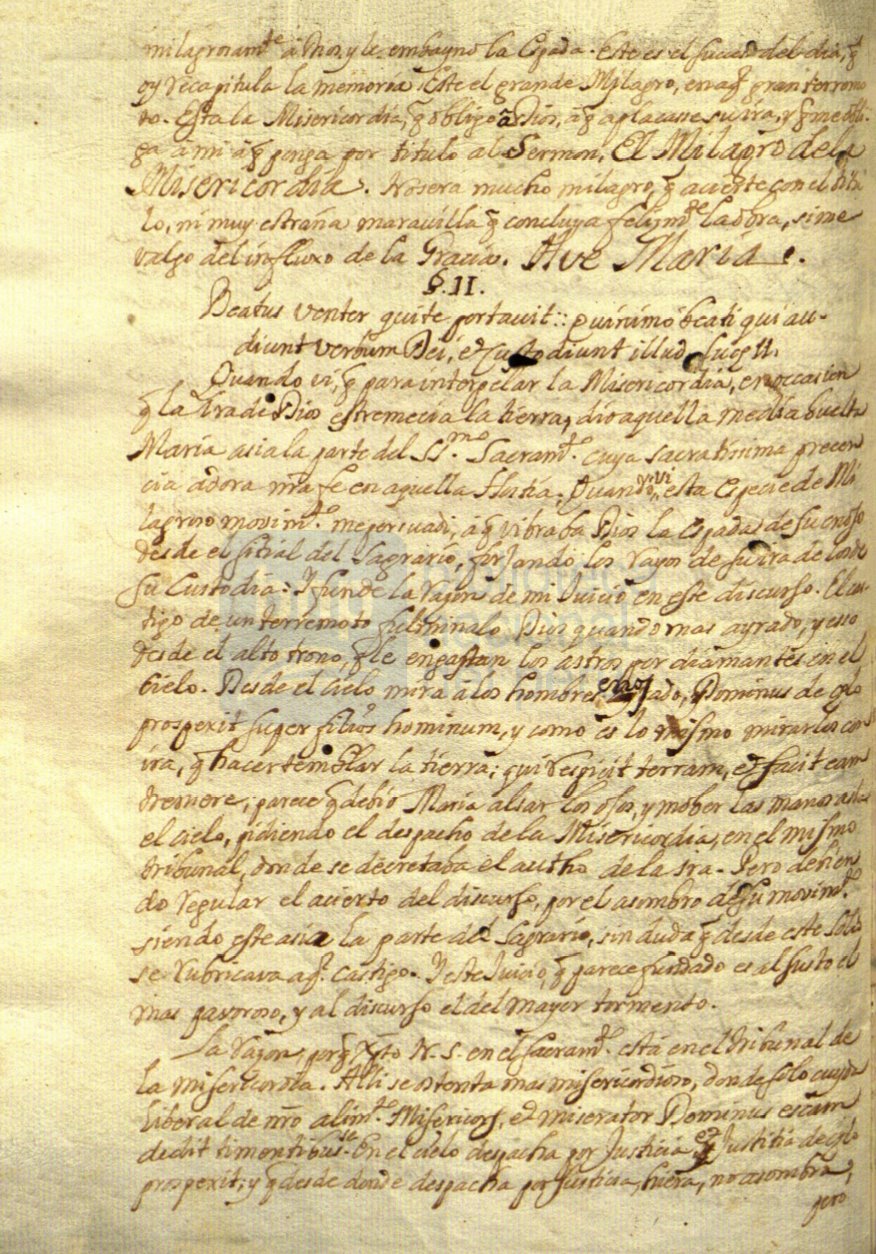 milagrosamte â Dios, y le embayno la Espada. Este es el suceso del dia, q̃
oy recapitula la memoria. Este el grande Milagro, en aql̃ gran terremo
to. Esta la Misericordia, q̃ obligo â Dios, â q̃ aplacasse su ira, y q̃ me obli-
ga â mi â q̃ ponga por titulo al Sermon, El Milagro de la
Misericordia. No sera mucho milagro, q̃ acierte con el titu
lo, ni muy estraña maravilla q̃ concluya felizmte la obra, si me
valgo del influxo de la Gracia. Ave Maria.
§. II.
Beatus venter qui te portavit:: quinimo beati qui au-
diunt verbum Dei, et custodiunt illud. Lucę 11.
Quando vi, q̃ para interpelar la Misericordia, en occasion
q̃ la ira de Dios estremecia la tierra, dio aquella media buelta
Maria asia la parte del Ssmo. Sacramto. cuya sacratissima precen
cia adora nr̃a fe en aquella Hostia. Quando vi, esta especie de Mi
lagroso movimto. me persuadi, â q̃ vibraba Dios la Espada de su enojo
desde el sitial del Sagrario, forjando los rayos de su ira de
su Custodia. Y funde la razon de mi Juicio en este discurso. El cas-
tigo de un terremoto fulminalo Dios quando mas ayrado, y esso
desde el alto trono, q̃ le engastan los astros por diamantes en el
Cielo. Desde el cielo mira â los hombres enojado, Dominus de cęlo
prosperit super filios hominum, y como es lo mismo mirarlos con
ira, q̃ hacer temblar la tierra; qui respicit terram, et facit eam
tremere; parece q̃ debio Maria alsar los ojos, y mober las manos asia
el cielo, pidiendo el despacho de la Misericordia, en el mismo
tribunal, donde se decretaba el autho de la ira. Pero debien
do regular el acierto del discurso, por el asombro de su movimto.
siendo este asia la parte del Sagrario, sin duda q̃ desde este Solio
se rubricava aql̃ castigo. Y este Juicio, q̃ parece fundado es al susto el
mas pavoroso, y al discurso el del mayor tormento.
La razon, porq̃ Xp̃to N. S. en el Sacramto. està en el tribunal de
la misericordia. Alli se ostenta mas misericordioso, donde solo cuyda
liberal de nr̃o alimto. Misericors, et miserator Dominus escam
dedit timentibus se. En el cielo despacha por Justicia, et Justitia de cęlo
prosperit, y q̃ desde donde despacha por Justicia, hiera, no asombra,
pero